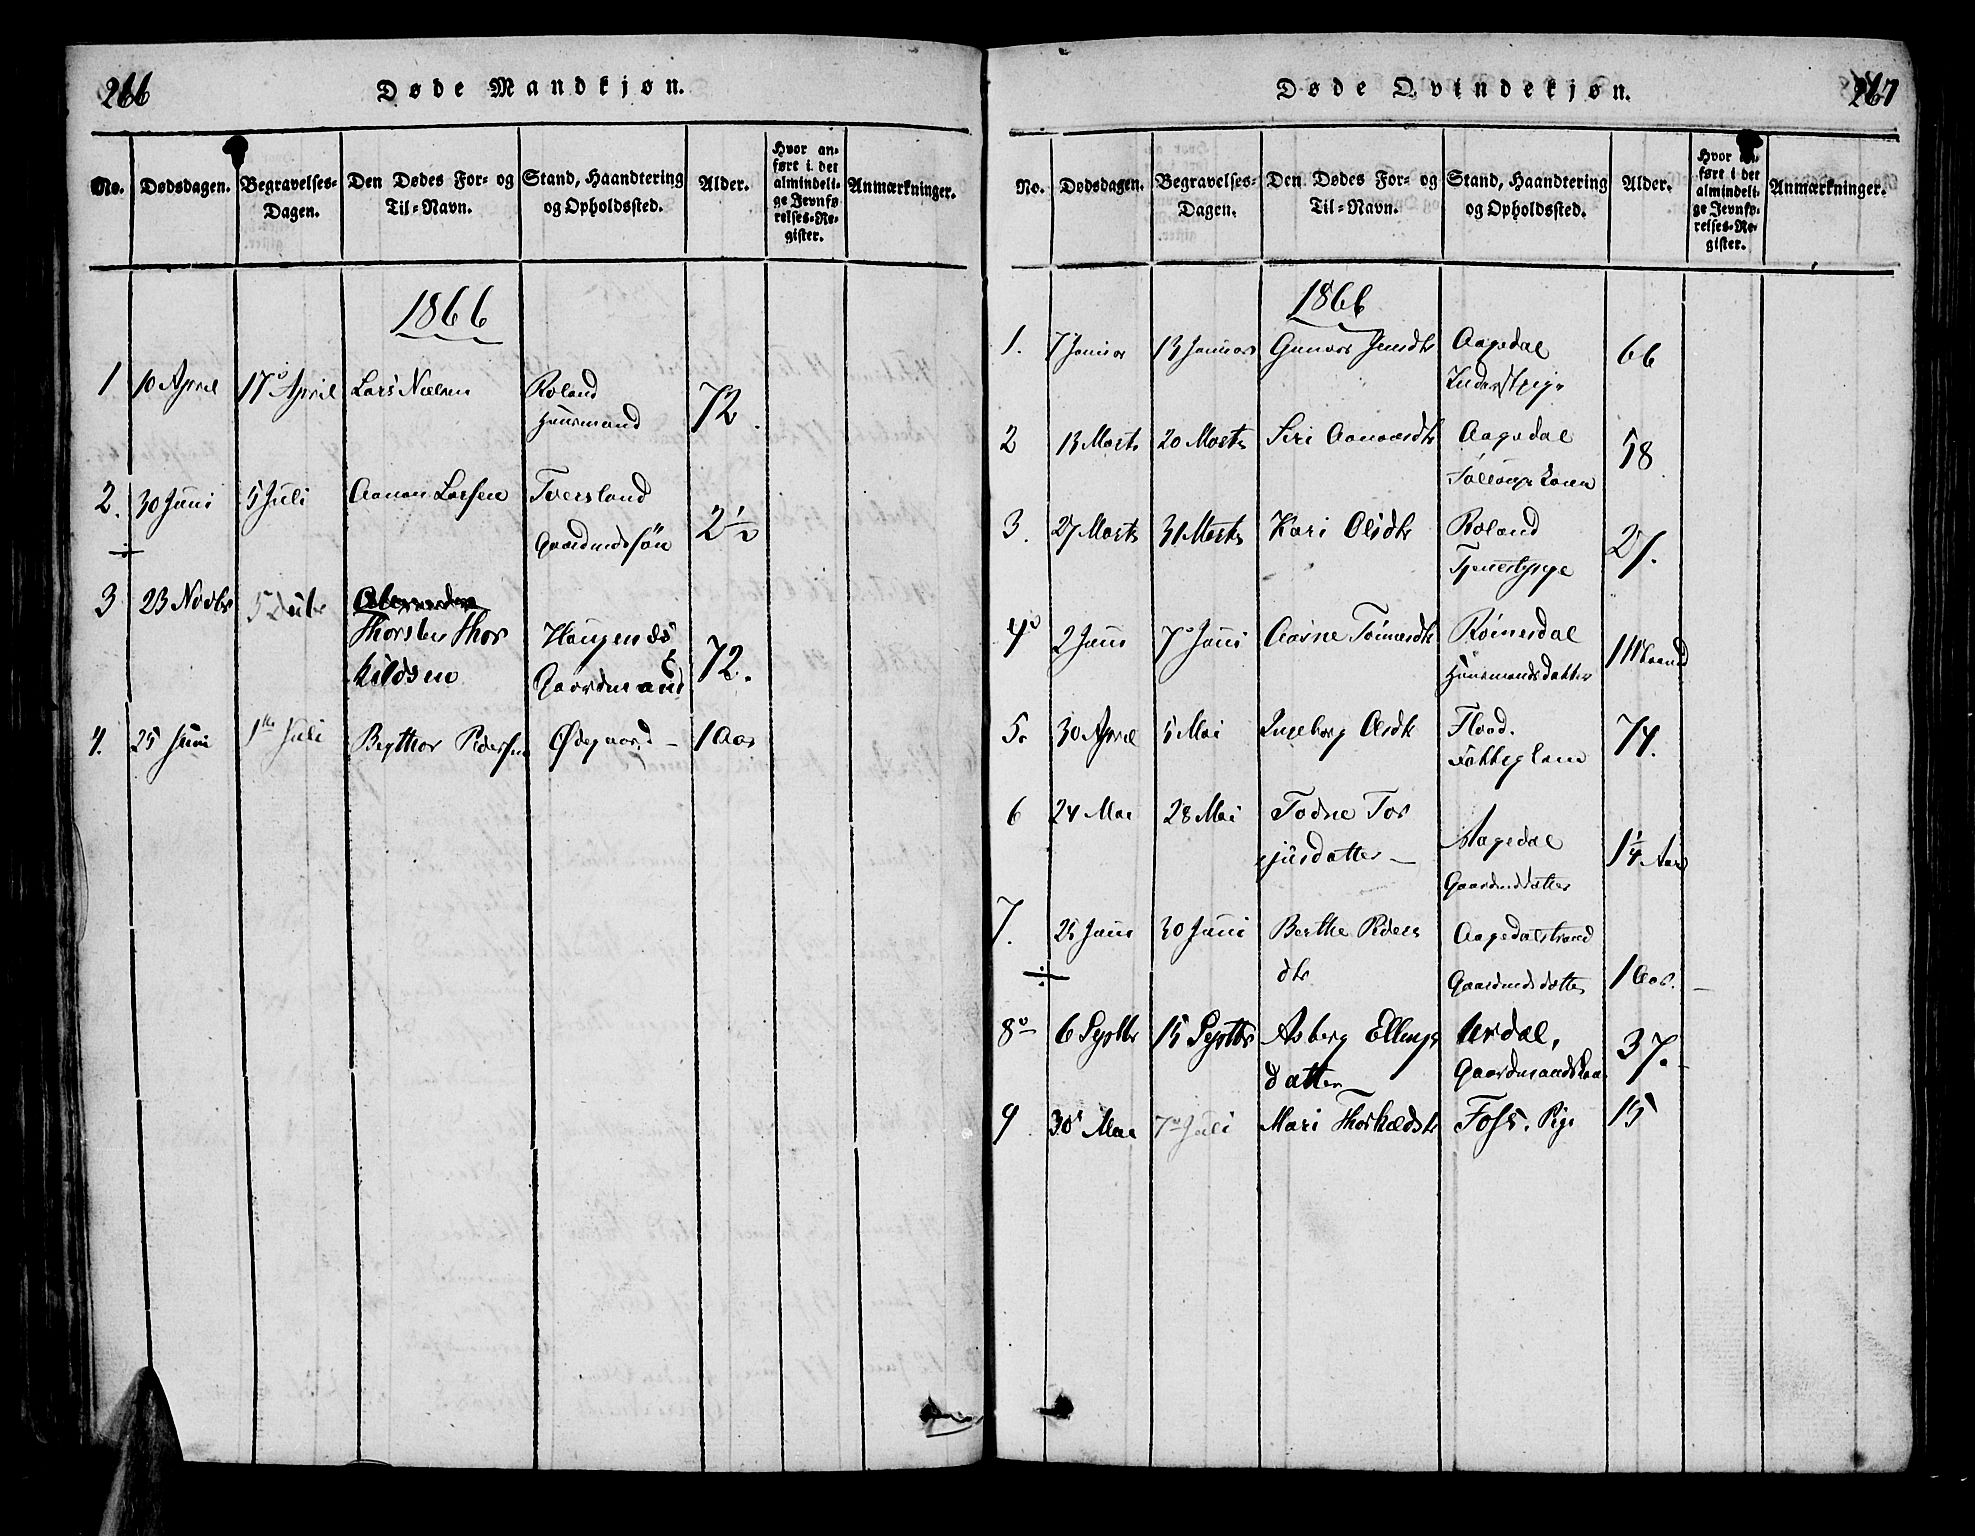 266
Døde Mandkjøn.
No. Dødsdagen. Begravelses-Dagen. Den Dødes For- og Til-Navn. Stand, Haandtering og Opholdssted. Alder. Hvor anført i det almindelige Jevnførelses-Register. Anmærkninger.
1866
1 10 April 17 April Lars Nielsen Roland
Huusmand 72
2. 30 Juni 5 Juli Aanon Larsen Tversland
Gaardmdssön 2½
3 23 Novbr 5
Thorsten Thor
kildsen
Gaardmand 72.
4. 25 Juni 1 Juli Pedersen Ødegaard 1 Aar
267
Døde Qvindekjøn.
No. Dødsdagen. Begravelses-Dagen. Den Dødes For- og Til-Navn. Stand, Haandtering og Opholdssted. Alder. Hvor anført i det almindelige Jevnførelses-Register. Anmærkninger.
1866
1. 7 Januar 13 Januar Gunvor Aagedal 66
2 13 Marts 20 Marts Siri Aanondtr Aagedal 58
3. 27 Marts 31 Marts Kari Olsdtr Roland 27.
Tjenestpige
4 2 Juni 7 Juni Aasne
Huusmandsdatter
5. 30 April 5 Mai Ingeborg Olsdtr Flood. 74.
6 24 Mai 28 Mai Todne Tor
jusdatter Aagedal 1¼ Aar
Gaardmdsdatter
7. 25 Juni 30 Juni Berthe Peders
dtr Aagedalstrand
Gaardmdsdatter 1 Aar.
8 6 Septbr 15 Septbr Asberg Ellings
datter Urdal, 37.
Gaardmandskone
9 30 Mai 7 Juli Mari Thorkeldsdtr Foss. Pige 15